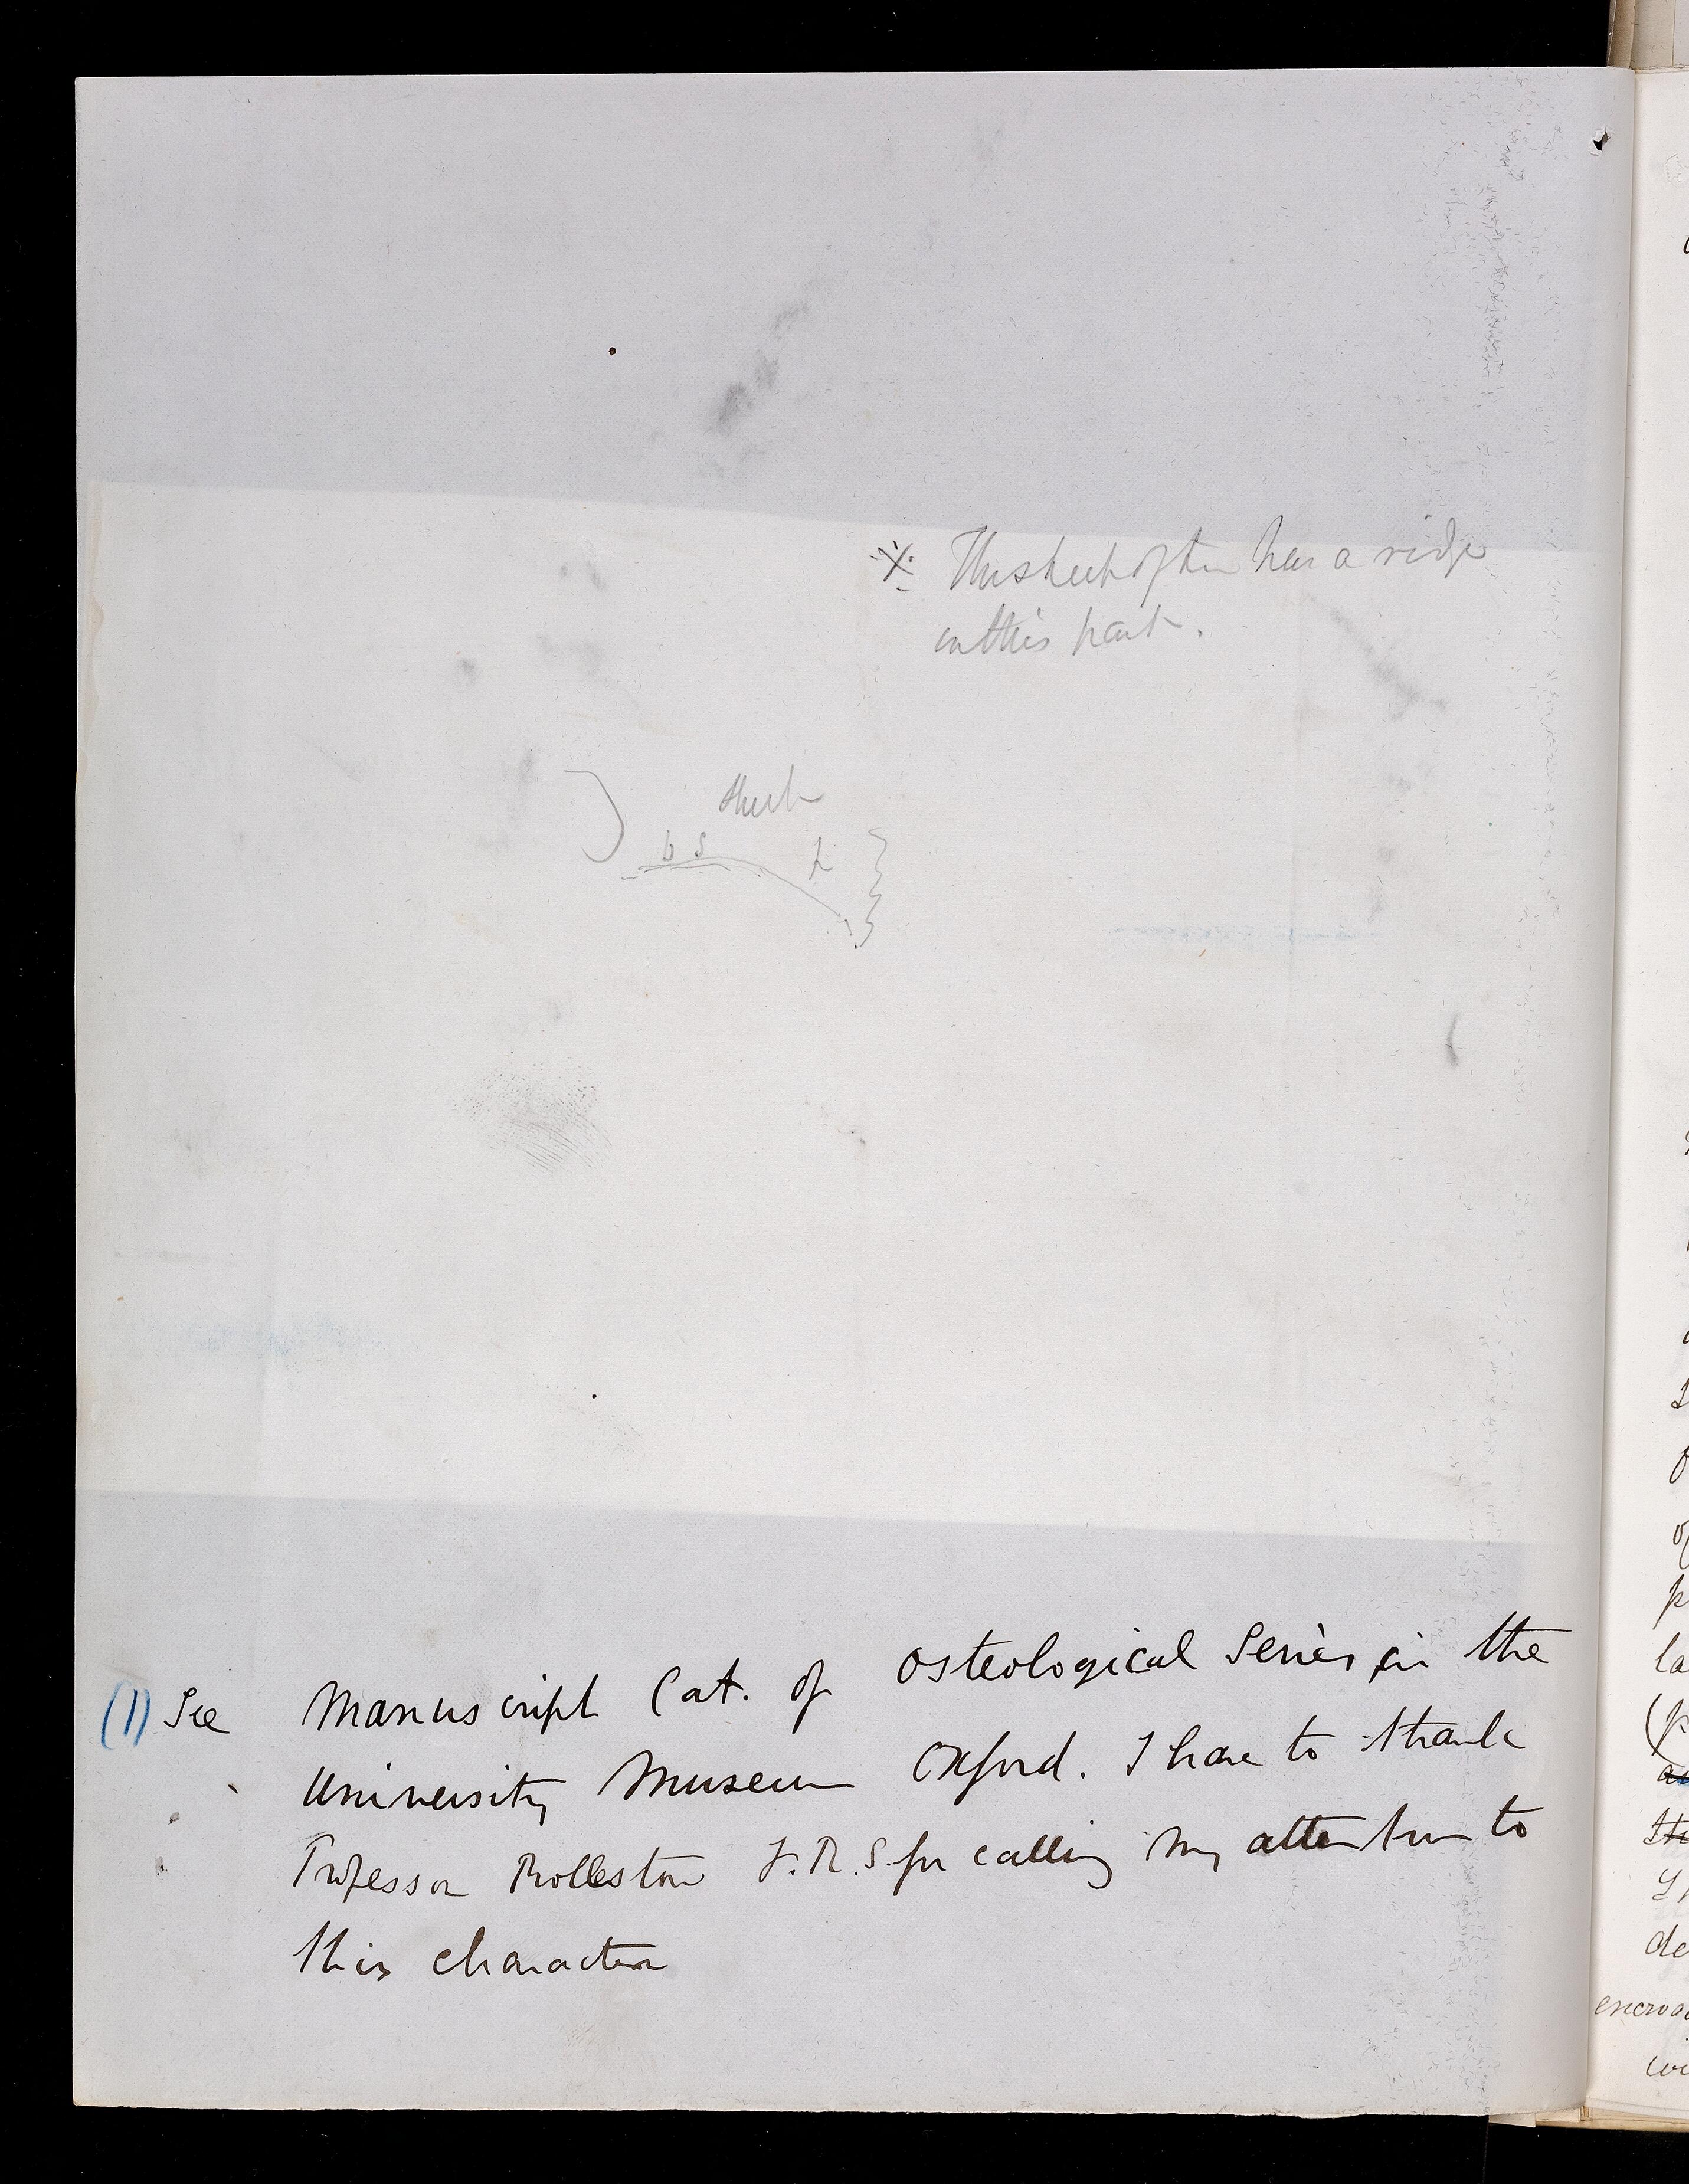 ※ The sheep often has a ridge
in this part.
sheep
b s
(1) See Manuscript Cat. of Osteological Series in the
University Museum Oxford. I have to thank
Professor Rolleston F.R.S. for calling my attention to
this character